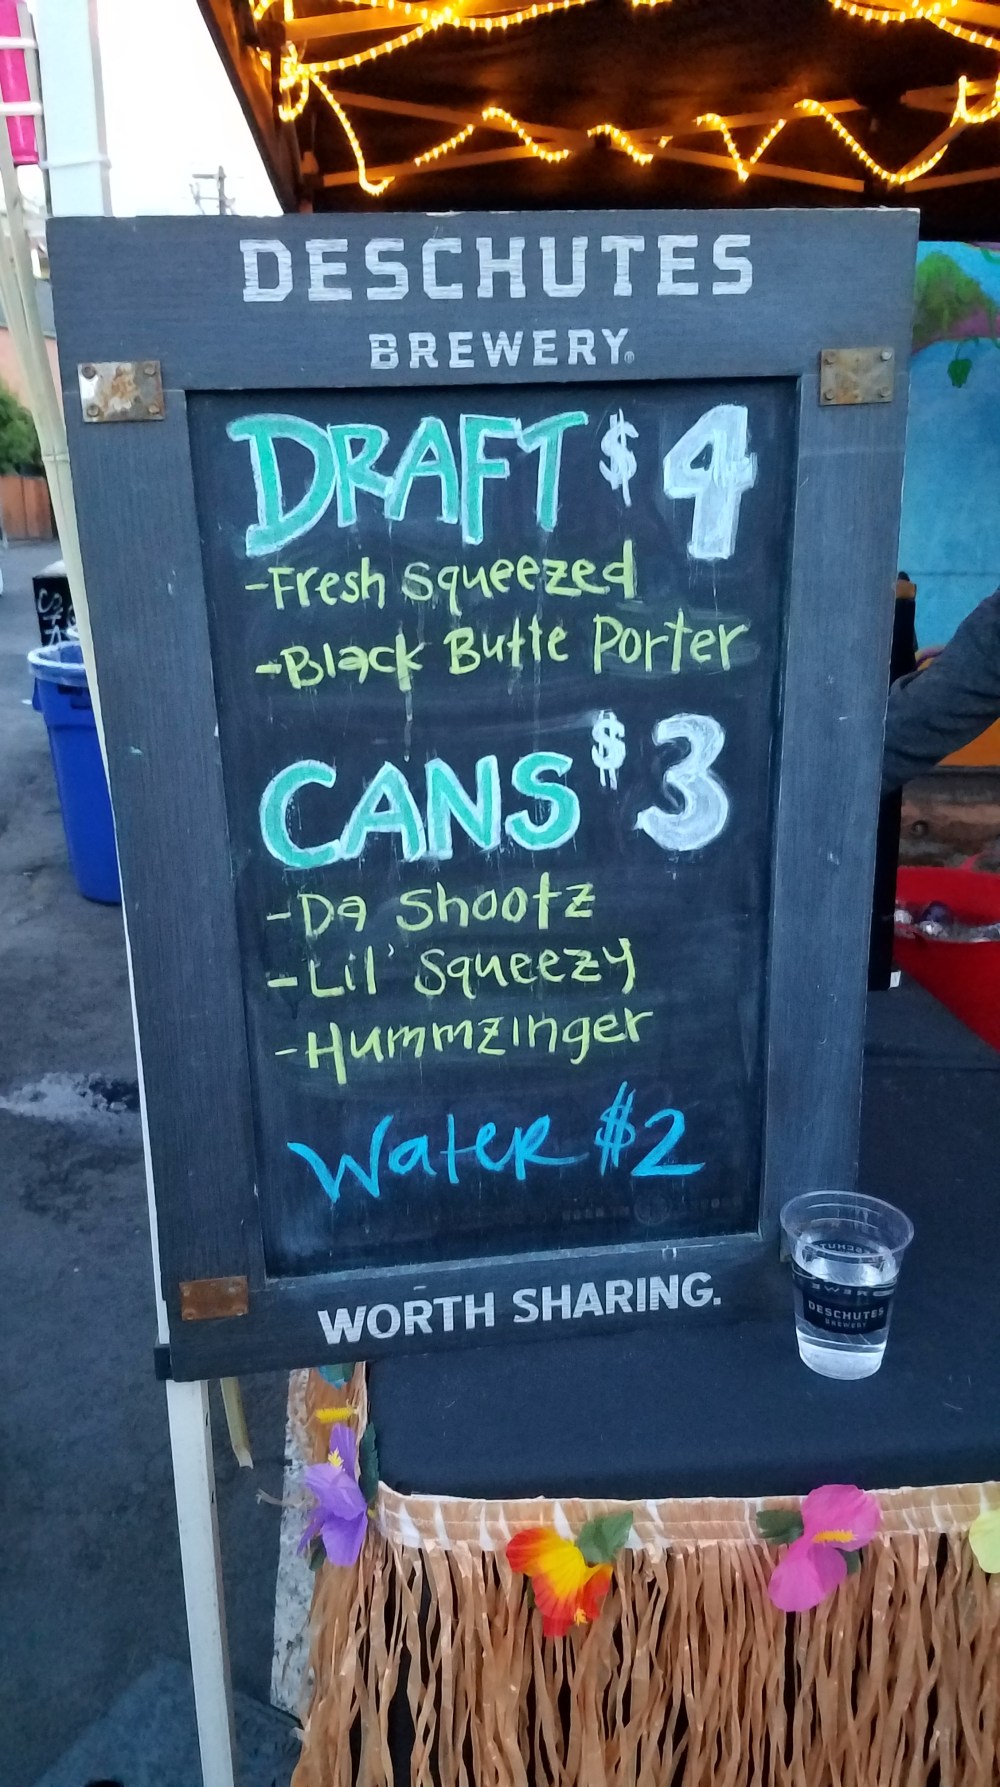 DESCHUTES
BREWERY®
DRAFT $4
-Fresh Squeezed
-Black Butte Porter
CANS $3
-Da Shootz
-Lil' Squeezy
-Hummzinger
Water $2
WORTH SHARING.
DESCHUTES
BREWERY